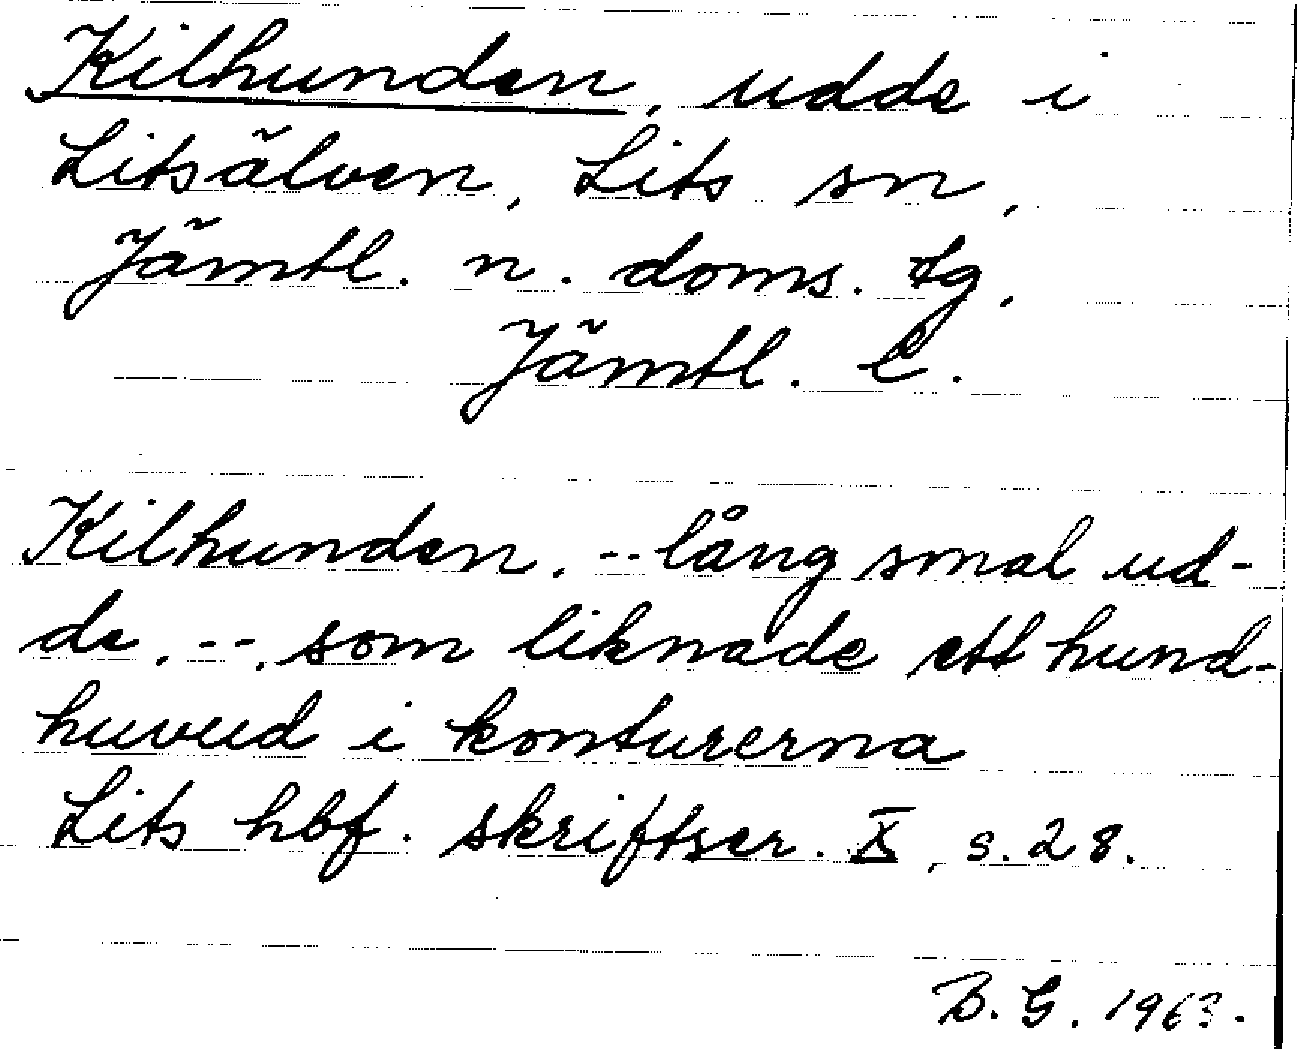 Kilhunden, udde i
Litsälven, Lits sn,
Jämtl. n. doms. tg,
Jämtl. l.
Kilhunden. -- lång smal ud-
de. --. som liknade ett hund-
huvud i konturerna
Lits hbf. skriftser. X, s. 28.
B. G. 1963.